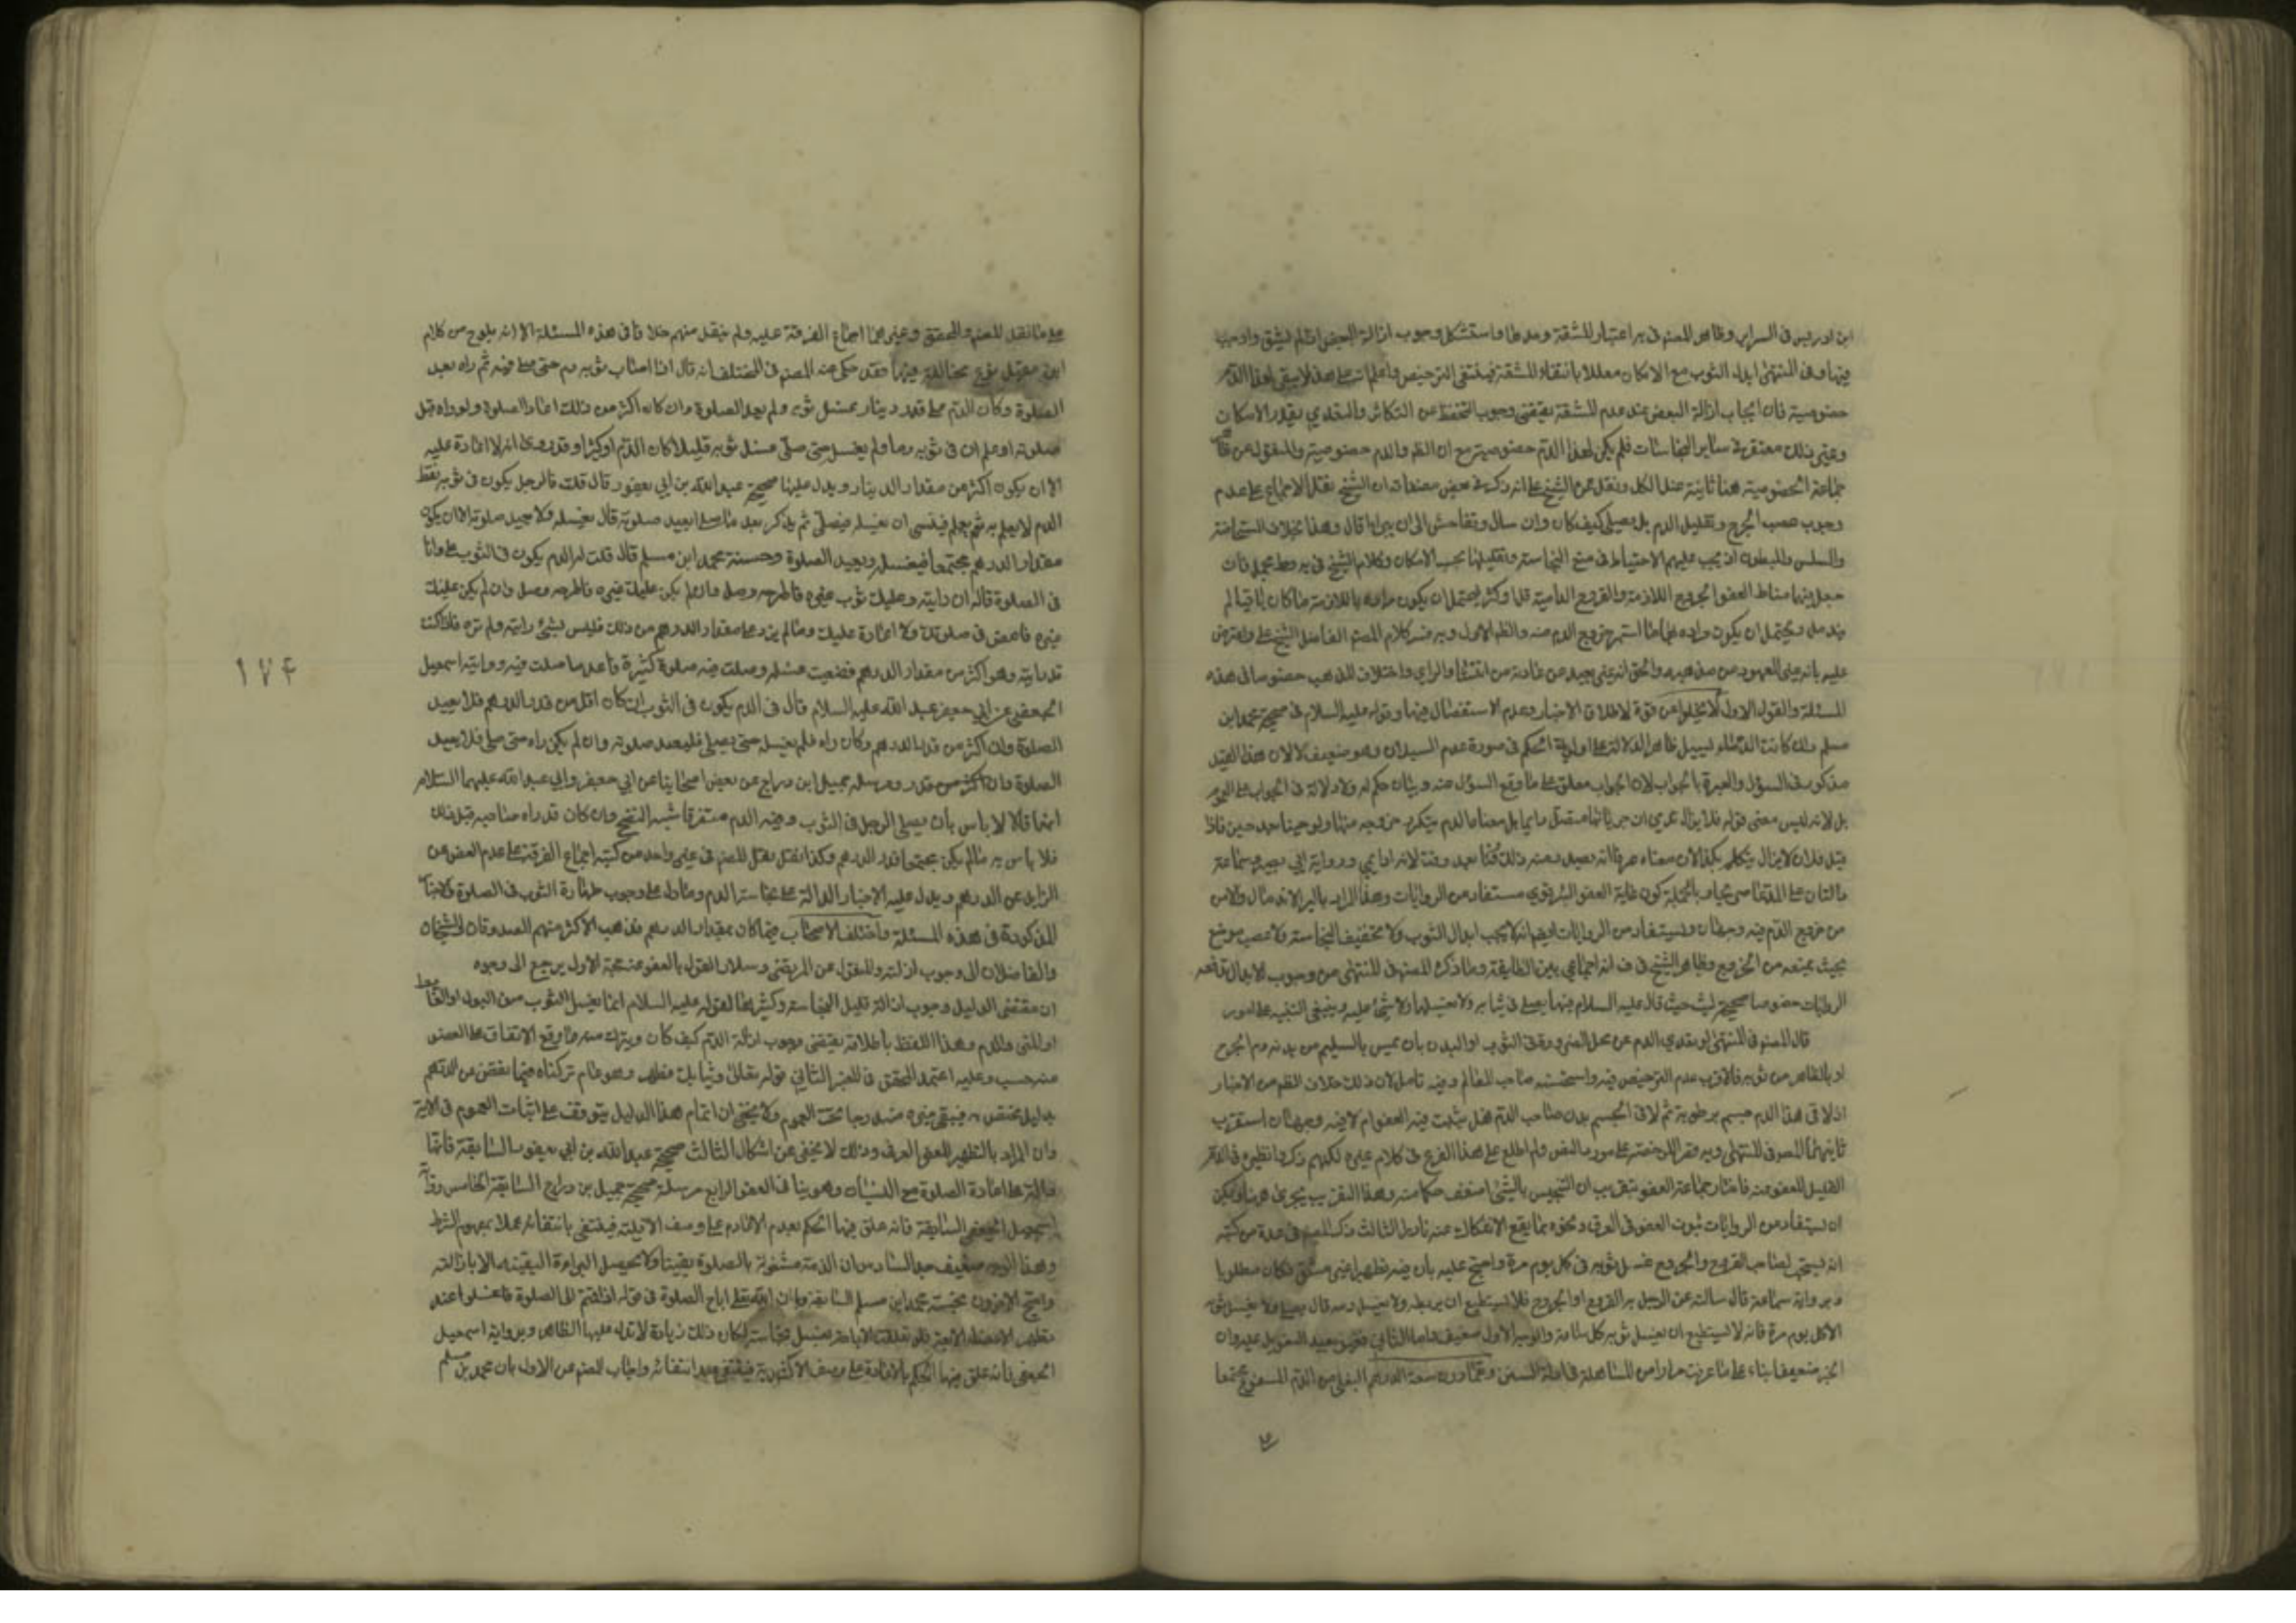 ابن ادريس فى السراير وظاهر المصنف فى ير اعتبار المشقة ومد طا واستشكل وجوب ازالة البعض اذا لم يشق واوجب
فيها وفى المنتهى ابدال الثوب مع الامكان معللا بانتفاء المشقة فينتفى الترخيص واعلم انه على هذا لا يبقى لهذا الدم
خصوصية فان ايجاب ازالة البعض عند عدم المشقة يقتضى وجوب التحفظ من التكاثر والتعدي بقدر الامكان
وغير ذلك مغتفر فى ساير النجاسات فلم يكن لهذا الدم خصوصية مع ان الظ والدم خصوصيته والمنقول عن
جماعة الخصوصية هنا ثابتة عند الكل ونقل عن الشيخ على انه ذكر فى بعض مصنفاته ان الشيخ نقل الاجماع على عدم
وجوب عصب الجرح وتقليل الدم بل يصلى كيف كان وان سال وتفاحش الى ان يبرا قال وهذا بخلاف المستحاضة
والسلس والمبطون اذ يجب عليهم الاحتياط فى منع النجاسة وتقليلها بحسب الامكان وكلام الشيخ فى ير وط مجمل فان
جعل فيهما مناط العفو الجروح اللازمة والقروح الدامية قل او كثر فيحتمل ان يكون مراده باللازمة ما كان باقيا لم
يندمل ويحتمل ان يكون مراده بها ما استمر خروج الدم منه والظ الاول وبه فسر كلام المصنف الفاضل الشيخ على واعترض
عليه بانه غير المعهود من مذهبه والحق انه غير بعيد من عادته من انتشار الراي واختلاف المذهب خصوصا فى هذه
المسئلة والقول الاول لا يخلوا عن قوة لاطلاق الاخبار وعدم الاستفصال فيها وقوله عليه السلام فى صحيحة محمد ابن
مسلم وان كانت الدماء تسيل ظاهر الدلالة على اولوية الحكم فى صورة عدم السيلان وهو ضعيف لا لان هذا القيد
مذكور فى السؤال والعبرة بالجواب لان الجواب معلق على ما وقع السؤال عنه وبيان حكم له ولا دلالة فى الجواب على العموم
بل لانه ليس معنى قوله فلا يزال يدمي ان جريانها متصل دايما بل معناه ان الدم يتكرر خروجه منها ولو حينا بعد حين فاذا
قيل فلان لا يزال يتكلم بكذا كان معناه عرفا انه يصدر منه ذلك وقتا بعد وقت لانه دايمي ورواية ابي بصير وسماعة
دالتان على المدعا صريحا وبالجملة كون غاية العفو البرء قوي مستفاد من الروايات وهذا المراد بالبرء الاندمال والامن
من خروج الدم فيه وجهان ويستفاد من الروايات ايضا انه لا يجب ابدال الثوب ولا تخفيف النجاسة ولا عصب موضع
بحيث يمنعه من الخروج وظاهر الشيخ فى ف انه اجماعي بين الطايفة وما ذكره المصنف فى المنتهى من وجوب الابدال تدفعه
الروايات خصوصا صحيحة ليث حيث قال عليه السلام فيها يصلى فى ثيابه ولا يغسلها ولا شئ عليه وينبغى التنبيه على امور
قال المصنف فى المنتهى لو تعدى الدم عن محل الضرورة فى الثوب او البدن بان يمس بالسليم من بدنه دم الجرح
او بالظاهر من ثوبه فالاقرب عدم الترخيص فيه واستحسنه صاحب المعالم وفيه تامل لان ذلك خلاف الظ من الاخبار
اذا لاقى هذا الدم جسم برطوبة ثم لاقى الجسم بدن صاحب الدم هل يثبت فيه العفو ام لا فيه وجهان استقرب
ثانيهما المصنف فى المنتهى وفيه قصر الرخصة على مورد النص ولم اطلع على هذا الفرع فى كلام غيره لكنهم ذكروا نظيره فى الدم
القليل المعفو عنه فاختار جماعة العفو بتقريب ان المتنجس بالشئ اضعف حكما منه وهذا التقريب يجرى هنا ويمكن
ان يستفاد من الروايات ثبوت العفو فى العرق ونحوه مما يقع الانفكاك عنه نادرا الثالث ذكر المصنف فى عدة من كتبه
انه يستحب لصاحب القروح والجروح غسل ثوبه فى كل يوم مرة واحتج عليه بان فيه تطهيرا غير مشق فكان مطلوبا
وبرواية سماعة قال سالته عن الرجل به القروح او الجروح فلا يستطيع ان يربطه ولا يغسل دمه قال يصلى ولا يغسل ثوبه
الا كل يوم مرة فانه لا يستطيع ان يغسل ثوبه كل ساعة والوجه الاول ضعيف واما الثانى
الخبر ضعيفا بناء على ما عرفت مرارا من المساهلة فى ادلة السنن وعما دون سعة الدرهم البغلى من الدم المسفوح مجتمعا
على ما نقل المصنف والمحقق وغيرهما اجماع الفرقة عليه ولم ينقل منهم خلافا فى هذه المسئلة الا انه يلوح من كلام
ابن عقيل نوع مخالفة فيهما فقد حكى عنه المصنف فى المختلف انه قال اذا اصاب ثوبه دم حتى صلى فيه ثم راه بعد
الصلوة وكان الدم على قدر دينار غسل ثوبه ولم يعد الصلوة وان كان اكثر من ذلك اعاد الصلوة ولو راه قبل
صلوته او علم ان فى ثوبه دما ولم يغسل حتى صلى غسل ثوبه قليلا كان الدم او كثيرا وقد روى انه لا اعادة عليه
الا ان يكون اكثر من مقدار الدينار ويدل عليها صحيحة عبد الله بن ابي يعفور قال قلت فالرجل يكون فى ثوبه نقط
الدم لا يعلم به ثم يعلم فينسى ان يغسله فيصلى ثم يذكر بعد ما صلى ايعيد صلوته قال يغسله ولا يعيد صلوته الا ان يكون
مقدار الدرهم مجتمعا فيغسله ويعيد الصلوة وحسنة محمد ابن مسلم قال قلت له الدم يكون فى الثوب على وانا
فى الصلوة قال ان رايته وعليك ثوب غيره فاطرحه وصل وان لم يكن عليك غيره فاطرحه وصل وان لم يكن عليك
غيره فامض فى صلوتك ولا اعادة عليك وما لم يزد على مقدار الدرهم من ذلك فليس بشئ رايته او لم تره فاذا كنت
قد رايته وهو اكثر من مقدار الدرهم فضيعت غسله وصليت فيه صلوة كثيرة فاعد ما صليت فيه ورواية اسمعيل
الجعفى عن ابي جعفر عبد الله عليه السلام قال فى الدم يكون فى الثوب ان كان اقل من قدر الدرهم فلا يعيد
الصلوة وان اكثر من قدر الدرهم وكان راه فلم يغسله حتى يصلى فليعد صلوته وان لم يكن راه حتى صلى فلا يعيد
الصلوة وان اكثر من قدر ومرسلة جميل ابن دراج عن بعض اصحابنا عن ابي جعفر وابي عبد الله عليهما السلام
انهما قالا لا باس بان يصلى الرجل فى الثوب وفيه الدم متفرقا شبه النضح وان كان قد راه صاحبه قبل ذلك
فلا باس به ما لم يكن مجتمعا قدر الدرهم وكذا نقل المصنف فى غير واحد من كتبه اجماع الفرقة على عدم العفو عن
الزايد عن الدرهم ويدل عليه الاخبار الدالة على نجاسة الدم وما دل على وجوب طهارة الثوب فى الصلوة والاخبار
المذكورة فى هذه المسئلة واختلف الاصحاب فيما كان بمقدار الدرهم فذهب الاكثر منهم الصدوقان والشيخان
والفاضلان الى وجوب ازالته والمنقول عن المرتضى وسلار القول بالعفو عنه حجة الاول يرجع الى وجوه
ان مقتضى الدليل وجوب ازالة قليل النجاسة وكثيرها لقوله عليه السلام انما يغسل الثوب من البول او الغائط
او المنى والدم وهذا اللفظ باطلاقه يقتضى وجوب ازالة الدم كيف كان ويترك منه ما وقع الاتفاق على العفو
عنه حسب وعليه اعتمد المحقق فى المعتبر الثانى قوله تعالى وثيابك فطهر وهو عام تركناه فيما نقص عن الدرهم
بدليل مختص به فيبقى غيره مندرجا تحت العموم ولا يخفى ان اتمام هذا الدليل يتوقف على اثبات العموم فى الاية
وان المراد بالتطهير المعنى العرفى وذلك لا يخفى عن اشكال الثالث صحيحة عبد الله بن ابي يعفور السابقة فانها
دالة على اعادة الصلوة مع النسيان وهو ينافى العفو الرابع مرسلة صحيحة جميل بن دراج السابقة الخامس رواية
اسمعيل الجعفى السابقة فانه علق فيها الحكم بعدم الاعادة على وصف الاقلية فينتفى بانتفائه عملا بمفهوم الشرط
وهذا الوجه ضعيف جدا السادس ان الذمة مشغولة بالصلوة يقينا ولا يحصل البراءة اليقينية الا بازالته
واحتج الاخرون بحسنة محمد ابن مسلم السابقة وبان الله تعالى اباح الصلوة فى قوله اذا قمتم الى الصلوة فاغسلوا عند
تطهير الاعضاء الاربعة فلو تعلقت الاباحة بغسل نجاسة لكان ذلك زيادة لا تدل عليها الظاهر وبرواية اسمعيل
الجعفى فانه علق فيها الحكم بالاعادة على وصف الاكثرية فينتفى عند انتفائه واجاب المصنف عن الاول بان محمد بن مسلم
۱۷۴